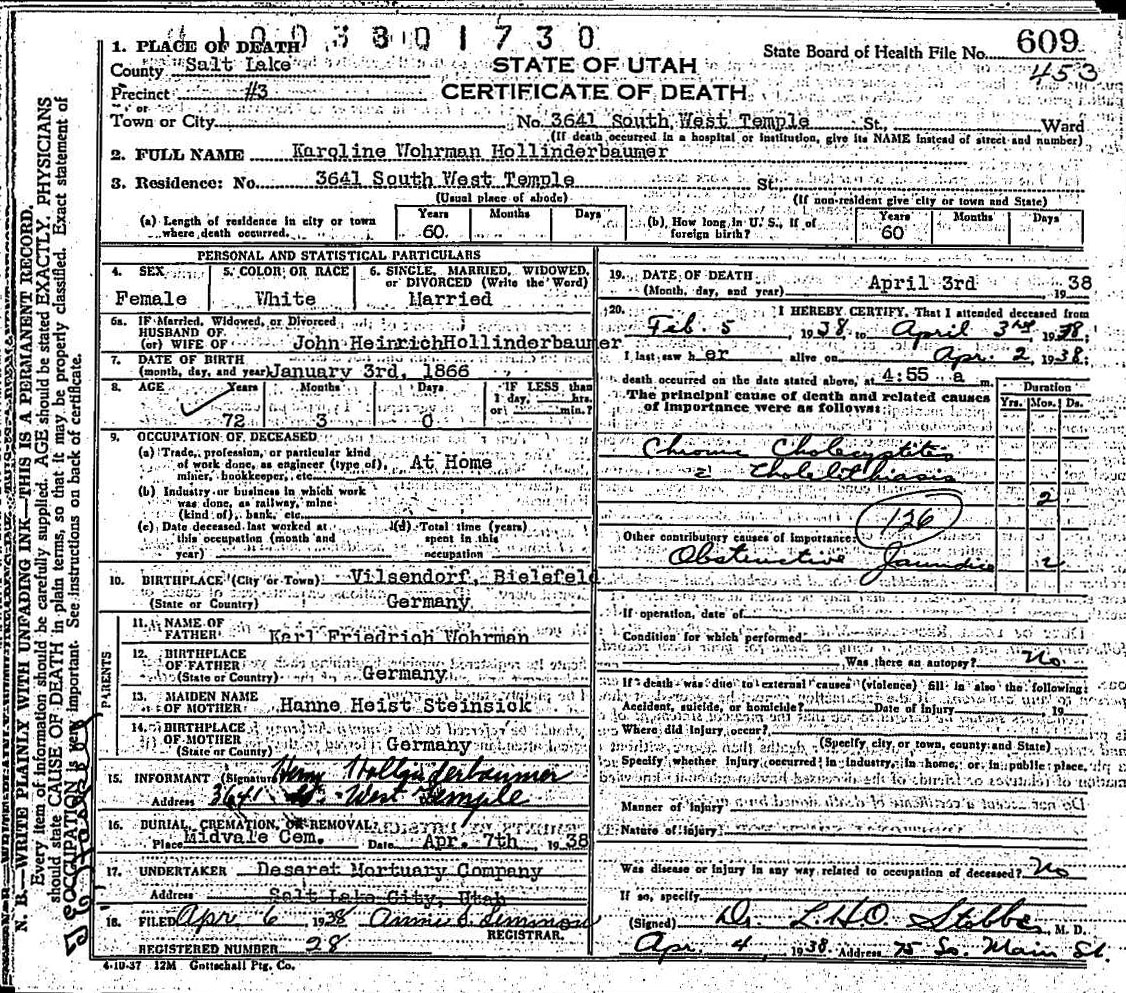 1003801730
1. PLACE OF DEATH
County Salt Lake
Precinct #3
or
Town or City
STATE OF UTAH
CERTIFICATE OF DEATH
State Board of Health File No. 609
453
No. 3641 South West Temple St., Ward
(If death occurred in a hospital or institution, give its NAME instead of street and number)
2. FULL NAME Karoline Wohrman Hollinderbaumer
3. Residence: No. 3641 South West Temple St.
(Usual place of abode) (If non-resident give city or town and State)
(a) Length of residence in city or town where death occurred. Years 60 Months Days
(b) How long in U. S., if of foreign birth? Years 60 Months Days
PERSONAL AND STATISTICAL PARTICULARS
4. SEX Female
5. COLOR OR RACE White
6. SINGLE, MARRIED, WIDOWED, or DIVORCED (Write the Word) Married
6a. IF Married, Widowed, or Divorced
HUSBAND OF
(or) WIFE OF John HeinrichHollinderbaumer
7. DATE OF BIRTH
(month, day, and year) January 3rd, 1866
8. AGE Years 72 Months 3 Days 0 IF LESS than 1 day, hrs. or min.?
9. OCCUPATION OF DECEASED
(a) Trade, profession, or particular kind
of work done, as engineer (type of), At Home
miner, bookkeeper, etc.
(b) Industry or business in which work
was done, as railway, mine
(kind of), bank, etc.
(c) Date deceased last worked at this occupation (month and year)
(d) Total time (years) spent in this occupation
10. BIRTHPLACE (City or Town) Vilsendorf, Bielefeld
(State or Country) Germany
PARENTS
11. NAME OF FATHER Karl Friedrich Wohrman
12. BIRTHPLACE OF FATHER
(State or Country) Germany
13. MAIDEN NAME OF MOTHER Hanne Heist Steinsick
14. BIRTHPLACE OF MOTHER
(State or County) Germany
15. INFORMANT (Signature) Henry Hollinderbaumer
Address 3641 So. West Temple
16. BURIAL, CREMATION, OR REMOVAL
Place Midvale Cem. Date Apr. 7th, 1938
17. UNDERTAKER Deseret Mortuary Company
Address Salt Lake City, Utah
18. FILED Apr 6 1938 Annie S. Simmon
REGISTRAR.
REGISTERED NUMBER 28
4-10-37 12M Gottschall Ptg. Co.
19. DATE OF DEATH
(Month, day, and year) April 3rd 1938
20. I HEREBY CERTIFY, That I attended deceased from
Feb. 5, 1938, to April 3rd, 1938;
I last saw her alive on Apr. 2 1938;
death occurred on the date stated above, at 4:55 a m.
The principal cause of death and related causes
of importance were as follows:
Duration
Yrs. Mos. Ds.
Chronic Cholecystitis
c Cholelithiasis
2
126
Other contributory causes of importance:
Obstructive Jaundice 2
If operation, date of
Condition for which performed
Was there an autopsy? No
If death was due to external causes (violence) fill in also the following:
Accident, suicide, or homicide? Date of Injury 19
Where did injury occur?
(Specify city or town, county and State)
Specify whether injury occurred in industry, in home, or in public place.
Manner of injury
Nature of injury
Was disease or injury in any way related to occupation of deceased? No
If so, specify
(Signed) Dr. L.H.O. Stobbe, M. D.
Apr. 4 1938. Address 75 So. Main St.
N. B.—WRITE PLAINLY WITH UNFADING INK—THIS IS A PERMANENT RECORD.
Every item of information should be carefully supplied. AGE should be stated EXACTLY. PHYSICIANS
should state CAUSE OF DEATH in plain terms, so that it may be properly classified. Exact statement of
OCCUPATION is very important. See instructions on back of certificate.